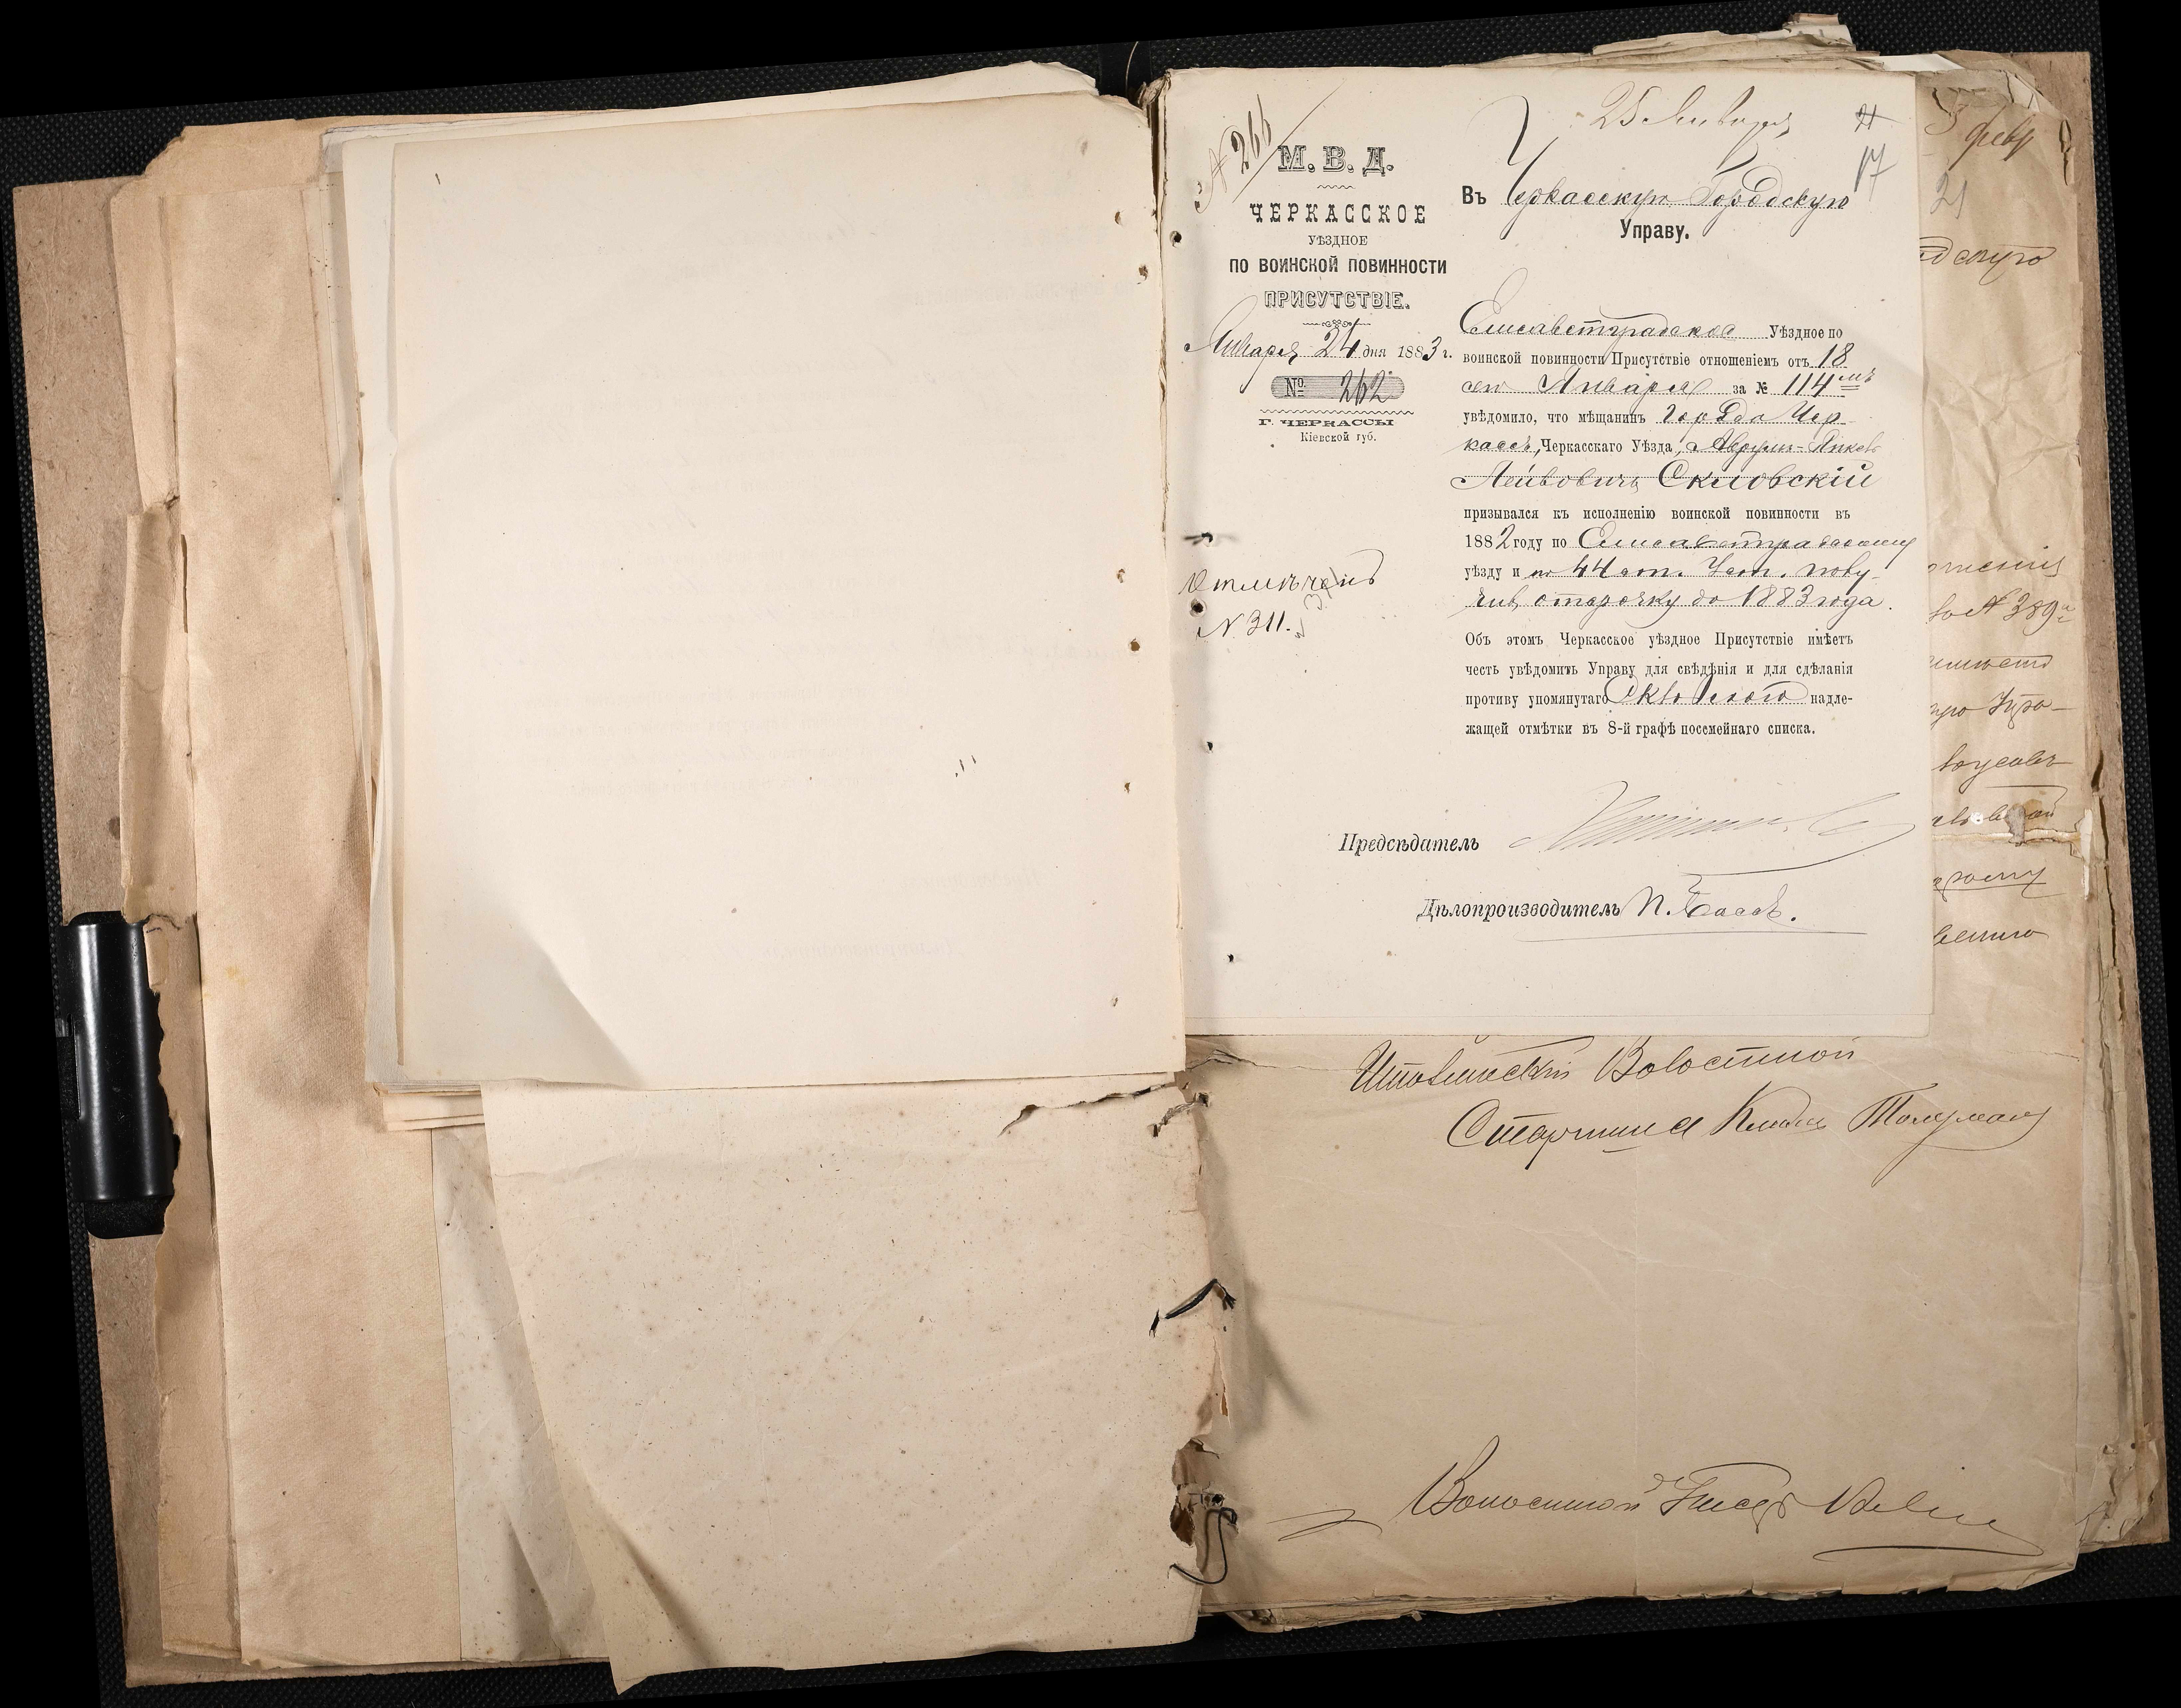 № 266
М. В. Д.
ЧЕРКАССКОЕ
УѢЗДНОЕ
ПО ВОИНСКОЙ ПОВИННОСТИ
ПРИСУТСТВІЕ.
Января 24 дня 1883 г.
№ 262
Г. ЧЕРКАССЫ
Кіевской губ.
Отмѣченъ
N 311.
25 Января
21
17
Въ Черкасскую Городскую
Управу.
Елисаветградское Уѣздное по
воинской повинности Присутствіе отношеніемъ отъ 18
сего Января за № 114мъ
увѣдомило, что мѣщанинъ города Чер-
кассъ, Черкасскаго Уѣзда, Аврумъ-Янкель
Лейбовичъ Скловскій
призывался къ исполненію воинской повинности въ
1882 году по Елисаветградскому
уѣзду и по 44 ст. Уст. полу-
чилъ отсрочку до 1883 года.
Объ этомъ Черкасское уѣздное Присутствіе имѣетъ
честь увѣдомить Управу для свѣдѣнія и для сдѣланія
противу упомянутаго Скловскаго надле-
жащей отмѣтки въ 8-й графѣ посемейнаго списка.
Предсѣдатель
Дѣлопроизводитель П. Бассъ.
5 февр
21
№ 389
Волостной
Старшина
Волостной Писарь